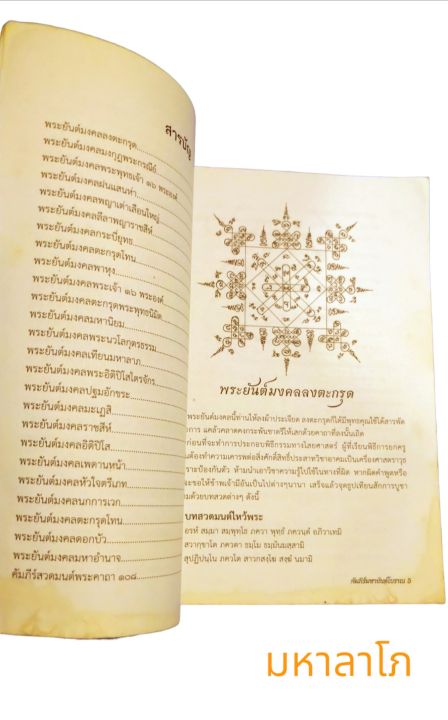 สารบัญ
พระยันต์มงคลลงตะกรุด
พระยันต์มงคลมงกุฎพระกรณีย์
พระยันต์มงคลพระพุทธเจ้า ๑๖ พระองค์
พระยันต์มงคลฝนแสนห่า
พระยันต์มงคลพญาเต่าเลือนใหญ่
พระยันต์มงคลลีลาพญาราชสีห์
พระยันต์มงคลกระบี่ยุทธ
พระยันต์มงคลตะกรุดโทน
พระยันต์มงคลพาหุง
พระยันต์มงคลพระเจ้า ๑๖ พระองค์
พระยันต์มงคลตะกรุดพระพุทธนิมิต
พระยันต์มงคลมหานิยม
พระยันต์มงคลพระนวโลกุตรธรรม
พระยันต์มงคลเทียนมหาลาภ
พระยันต์มงคลพระอิติปิโสไตรจักร
พระยันต์มงคลปฐมอักขระ
พระยันต์มงคลมะฏุสิ
พระยันต์มงคลราชสีห์
พระยันต์มงคลอิติปิโส
พระยันต์มงคลเพดานหน้า
พระยันต์มงคลหัวใจตรีเภท
พระยันต์มงคลนกการเวก
พระยันต์มงคลตะกรุดโทน
พระยันต์มงคลดอกบัว
พระยันต์มงคลมหาอำนาจ
คัมภีร์สวดมนต์พระคาถา ๑๐๘
พระยันต์มงคลลงตะกรุด
พระยันต์มงคลนี้ท่านให้ลงผ้าประเจียด ลงตะกรุดก็ได้มีพุทธคุณใช้ได้สารพัด
การ แคล้วคลาดคงกระพันชาตรีให้เสกด้วยคาถาที่ลงนั้นเถิด
ก่อนที่จะทำการประกอบพิธีกรรมทางไสยศาสตร์ ผู้ที่เรียนพิธีการยกครู
ต้องทำความเคารพต่อสิ่งศักดิ์สิทธิ์ประสาทวิชาอาคมเป็นเครื่องศาสตราวุธ
ราะป้องกันตัว ห้ามนำเอาวิชาความรู้ไปใช้ในทางที่ผิด หากผิดคำพูดหรือ
จะขอให้ร่ำเจ้ามีอันเป็นไปต่างๆนานา เสร็จแล้วจุดธูปเทียนสักการบูชา
มด้วยบทสวดต่างๆ ดังนี้
บทสวดมนต์ไหว้พระ
อรหํ สมฺมา สมฺพุทฺโธ ภควา พุทฺธํ ภควนฺตํ อภิวาเทมิ
สวากฺขาโต ภควตา ธมฺโม ธมฺมํนมสฺสามิ
สุปฏิปนฺโน ภควโต สาวกสงฺโฆ สงฺฆํ นมามิ
คัมภีร์มหายันต์โบราณ 5
มหาลาโภ